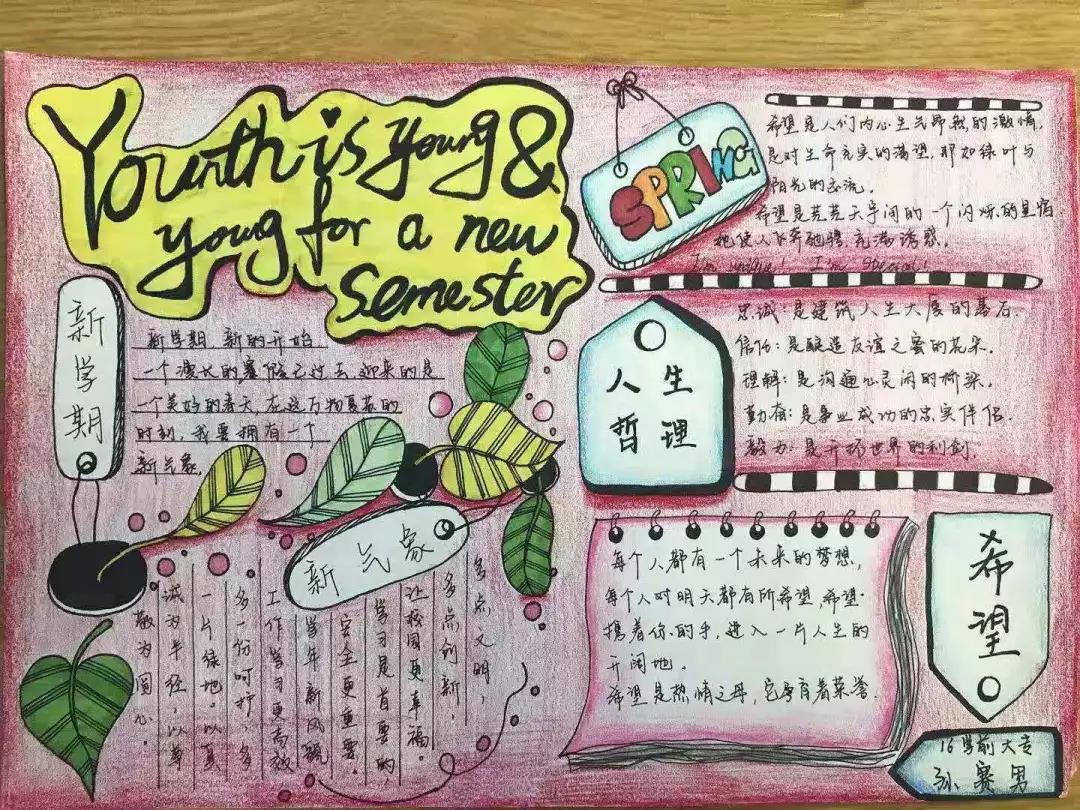 Youth is young &
young for a new
semester
新学期
新学期 新的开始
一个漫长的寒假已过去,迎来的是
一个美好的春天,在这万物复苏的
时刻,我要拥有一个
新气象。
新气象
多点文明,
多点创新,
让校园更幸福。
学习是首要的,
安全更重要。
当年新风貌
工作学习更高效
多一份呵护,多
一片绿地。以真
诚为半径,以尊
敬为圆心.
SPRING
希望是人们内心生气即我的激情,
是对生命充实的渴望,那如绿叶与
阳光的交流。
希望是茫茫天宇间的一个闪烁的星宿
她使人飞奔驰骋 充满诱惑。
人生
哲理
忠诚:是建筑人生大厦的基石.
信任:是酿造友谊之蜜的花朵.
理解:是沟通心灵间的桥梁.
勤奋:是事业成功的忠实伴侣.
毅力:是开环世界的利剑.
每个人都有一个未来的梦想,
每个人对明天都有所希望,希望·
携着你的手,进入一片人生的
开阔地。
希望是热情之母,它孕育着荣誉.
希望
16学前大专
孙赛男